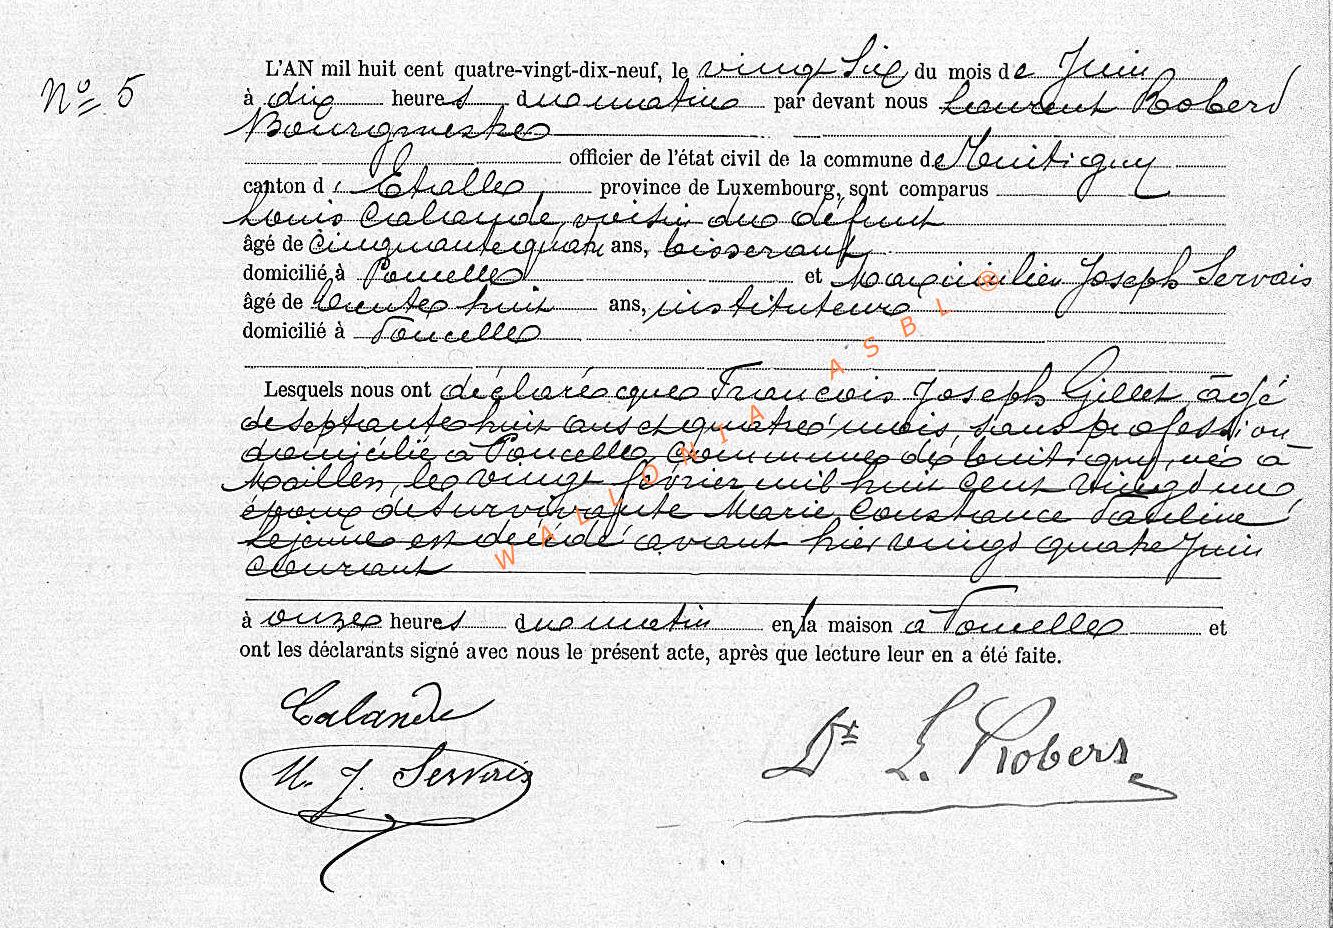 N° 5
L'AN mil huit cent quatre-vingt-dix-neuf, le vingt Six du mois de Juin
à dix heures du matin par devant nous Laurent Robert
Bourgmestre
officier de l'état civil de la commune de Buitigny
canton d' Etalle, province de Luxembourg, sont comparus
Louis Calande, voisin du défunt
âgé de cinquante quatre ans, tisserant
domicilié à Poncelle et Maximilien Joseph Servais
âgé de trente huit ans, instituteur
domicilié à Poncelle
Lesquels nous ont déclaré que François Joseph Gillet âgé
de septante huit ans et quatre mois, sans profession
domicilié à Poncelle, commune de, né à
Maillen, le vingt février mil huit cent vingt un
époux de survivante Marie Constance Pauline
Lejeune est décédé avant hier vingt quatre Juin
courant
à onze heures du matin en la maison à Poncelle et
ont les déclarants signé avec nous le présent acte, après que lecture leur en a été faite.
Calande
M. J. Servais
Dr L. Robert
WALLONIA ASBL ®